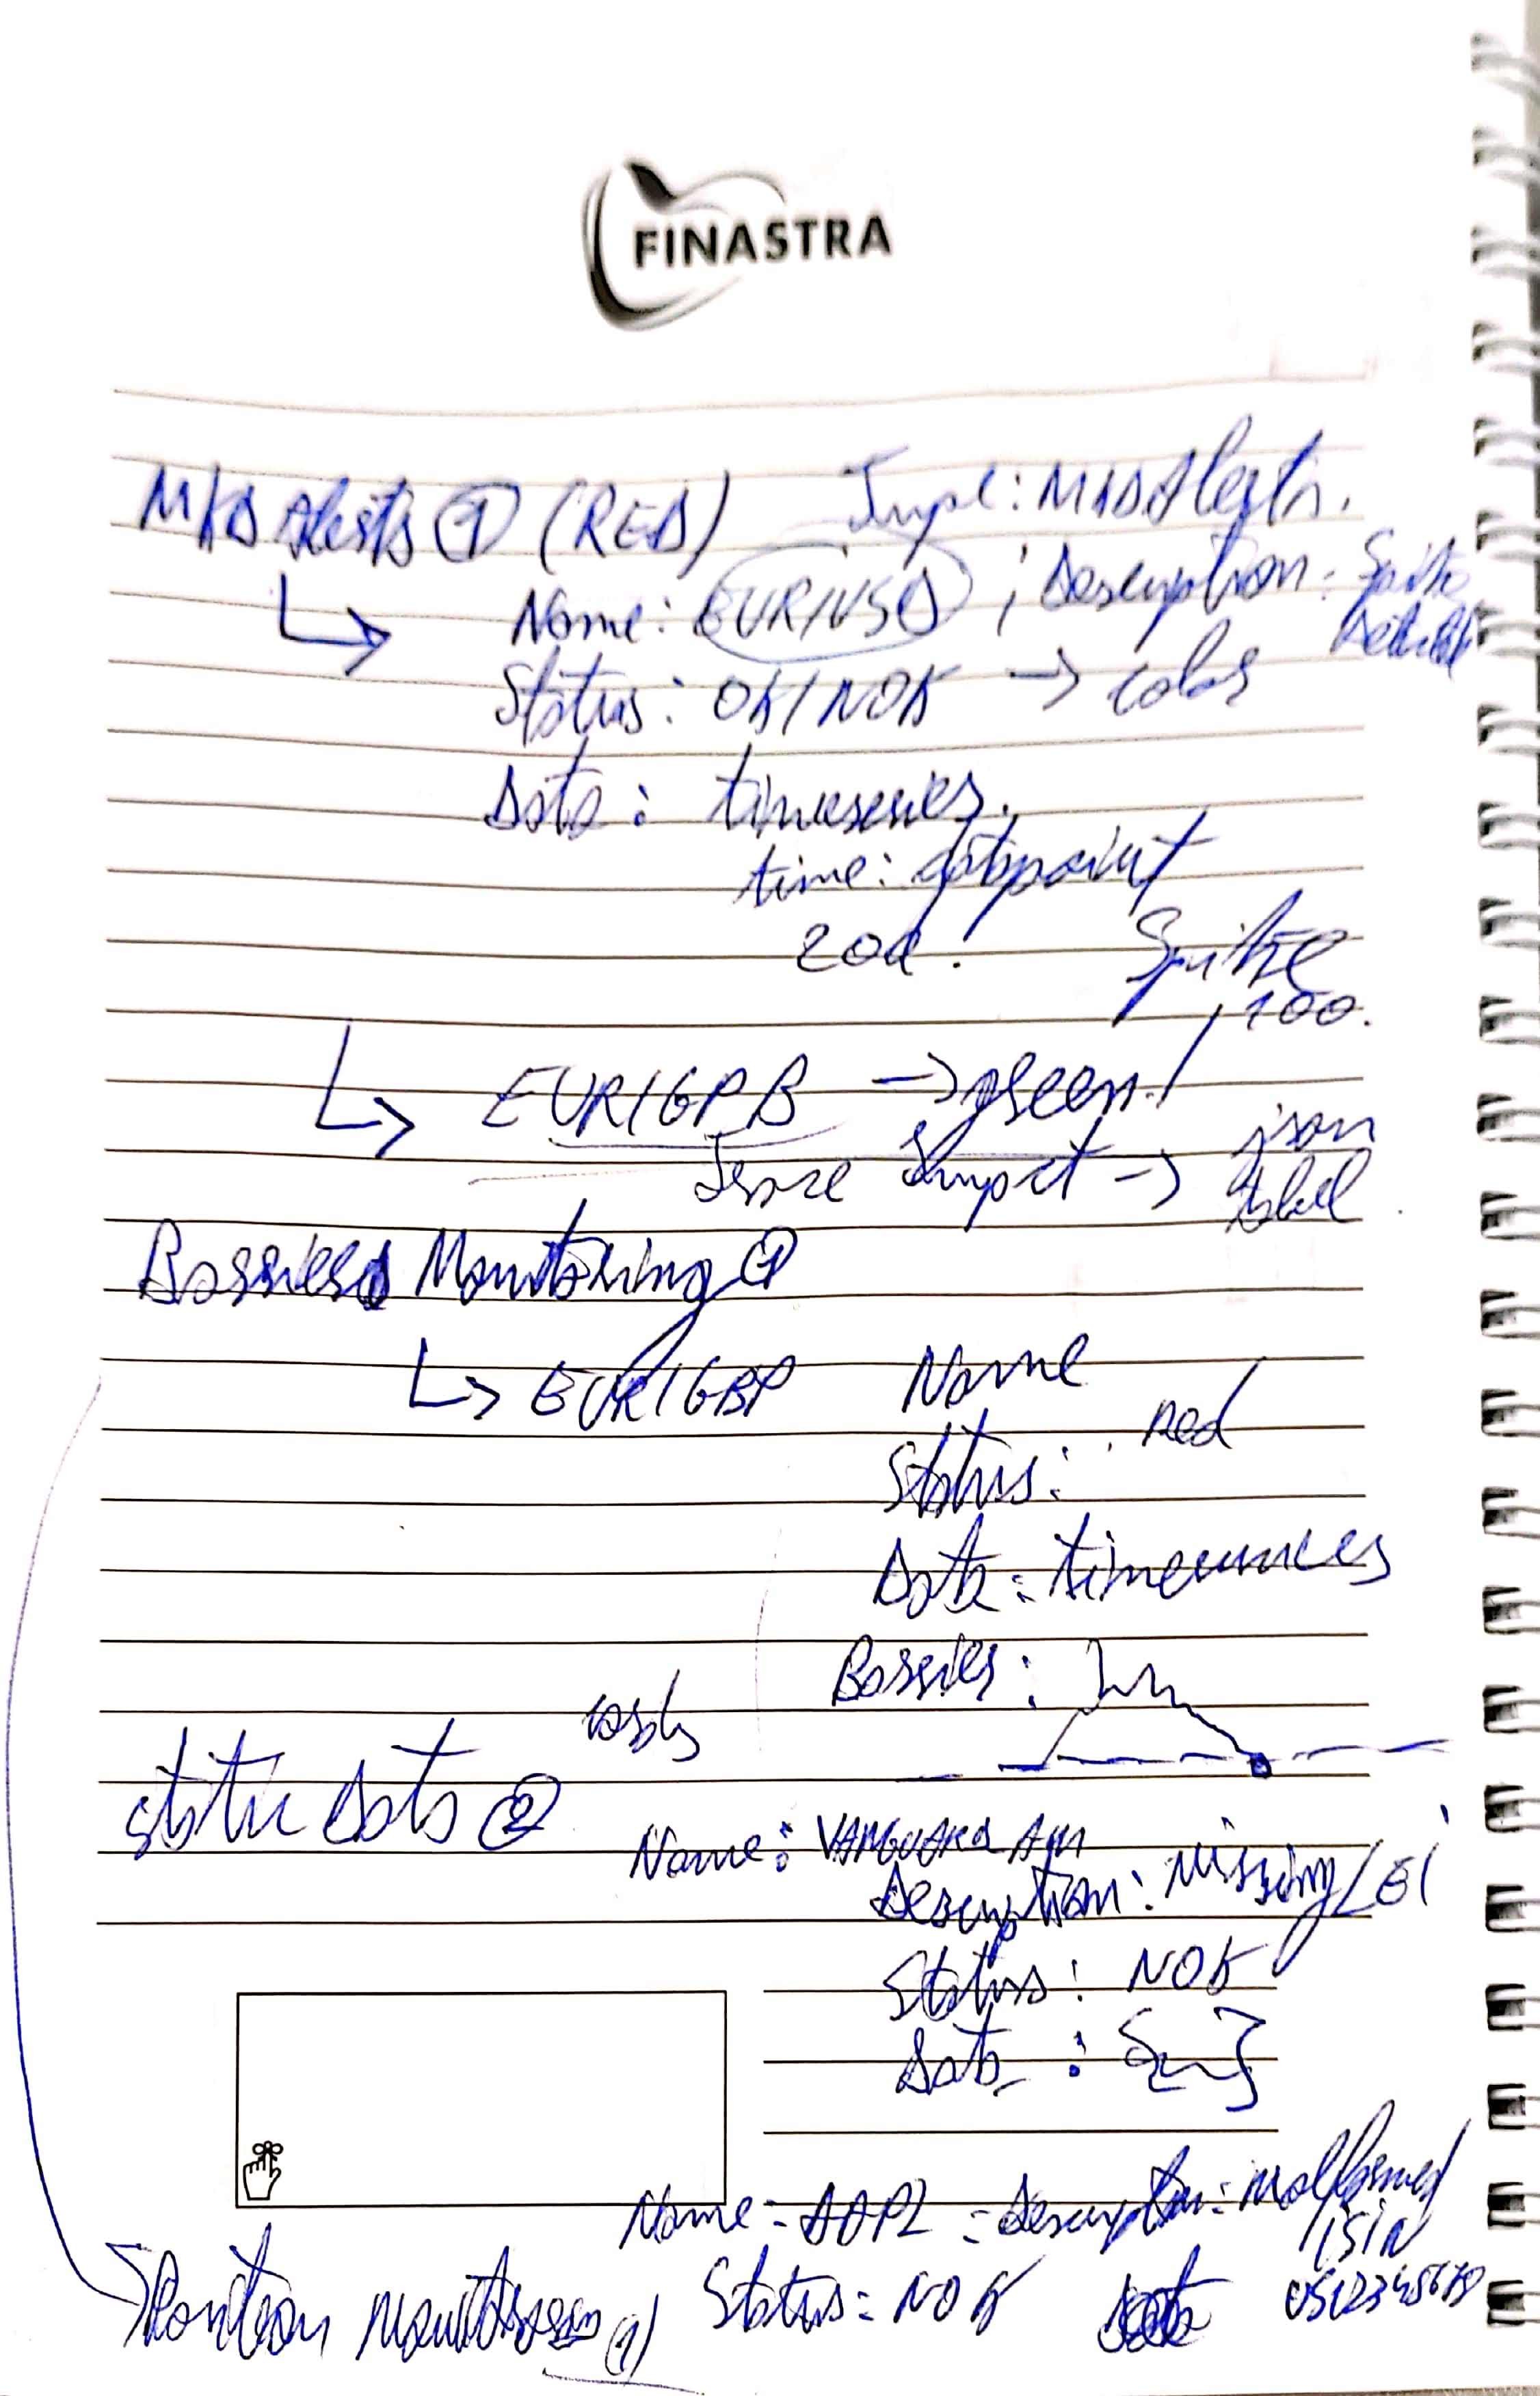 FINASTRA
MKD Alerts ① (RED)
Type: MKD Alerts.
Name: EUR/USD ; Description: Spike
Status: OK/NOK → color
Data: timeseries.
time: datapoint
20d. Spike
100.
EUR/GPB → green
Impact → json
label
Barriers Monitoring ①
EUR/GBP Name
Status: red
Data: timeseries
Barrier:
static data ②
Name: VANGUARD AM
Description: Missing LEI
Status: NOK
Data : { }
Name = AAPL = description: malformed
ISIN
US12345678
Status = NOK
Position monitoring (1)